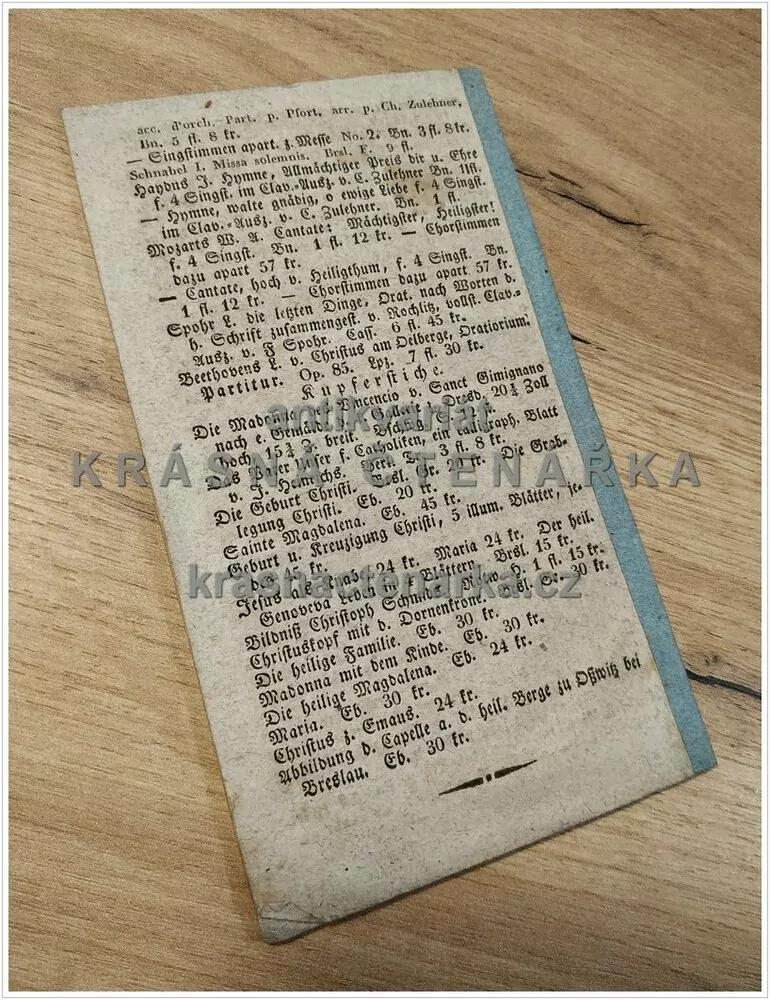 acc. d'orch. Part. p. Pfort. arr. p. Ch. Zulehner.
Bn. 5 fl. 8 kr.
— Singstimmen apart. z. Messe No. 2. Bn. 3 fl. 8 kr.
Schnabel I. Missa solemnis. Brsl. F. 9 fl.
Haydns J. Hymne, Allmächtiger Preis dir u. Ehre
f. 4 Singst. im Clav.-Ausz. v. C. Zulehner Bn. 1 fl.
— Hymne, walte gnädig, o ewige Liebe f. 4 Singst.
im Clav.-Ausz. v. C. Zulehner. Bn. 1 fl.
Mozarts W. A. Cantate: Mächtigster, Heiligster!
f. 4 Singst. Bn. 1 fl. 12 kr. — Chorstimmen
dazu apart 57 kr.
— Cantate, hoch v. Heiligthum, f. 4 Singst. Bn.
1 fl. 12 kr. — Chorstimmen dazu apart 57 kr.
Spohr L. die letzten Dinge, Orat. nach Worten d.
h. Schrift zusammengest. v. Rochlitz, vollst. Clav.-
Ausz. v. F Spohr. Cass. 6 fl. 45 kr.
Beethovens L. v. Christus am Oelberge, Oratorium.
Partitur. Op. 85. Lpz. 7 fl. 30 kr.
Kupferstiche.
Die Madonna Vincencio v. Sanct Gimignano
nach e. Gemälde Gallerie Dresd. 20¾ Zoll
hoch 15¾ Z. breit.
Das Vater Unser f. Catholiken, ein calligraph. Blatt
v. J. Heinrichs. 3 fl. 8 kr.
Die Geburt Christi. 24 kr. Die Grab-
legung Christi. Eb. 20 kr.
Sainte Magdalena. Eb. 45 kr.
Geburt u. Kreuzigung Christi, 5 illum. Blätter, je-
des 45 kr.
Jesus als Knabe 24 kr. Maria 24 kr. Der heil.
Genoveva Leben in Blättern. Brsl. 15 kr.
Bildniß Christoph Schmids. 1 fl. 15 kr.
Christuskopf mit d. Dornenkrone. 30 kr.
Die heilige Familie. Eb. 30 kr.
Madonna mit dem Kinde. Eb. 30 kr.
Die heilige Magdalena. Eb. 24 kr.
Maria. Eb. 30 kr.
Christus z. Emaus. 24 kr.
Abbildung d. Capelle a. d. heil. Berge zu Oßwitz bei
Breslau. Eb. 30 kr.
antikvariát
KRÁSNÁ ČTENÁŘKA
krasnactenarka.cz